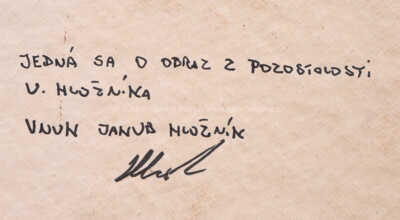 JEDNÁ SA O OBRAZ Z POZOSTALOSTI
V. HLOŽNÍKA
VNUK JANUB HLOŽNÍK